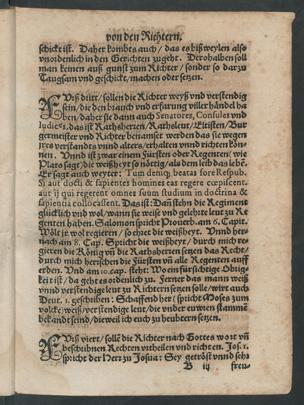 von den Richtern.
schickt ist. Daher kombts auch / das es bißweylen also
vnordenlich in den Gerichten zugeht. Derohalben soll
man keinen auß gunst zum Richter / sonder so darzu
Taugsam vnd geschickt / machen oder setzen.
AUffs dritt / sollen die Richter weyß vnd verstendig
sein / die den brauch vnd erfarung viller händel ha
ben / daher sie dann auch Senatores, Consules vnd
Iudices, das ist Rathherren / Rathsleut / Eltisten / Bur
germeister vnd Richter benamset werden das sie wegen
ires verstandts vnnd alters / erhalten vnnd richten kön-
nen. Vnnd ist zwar einem Fürsten oder Regenten / wie
Plato sagt / die weißheyt so nöttig / als dem leib das lebē.
Er sagt auch weyter: Tum deniq; beatas fore Respub.
Si aut docti & sapientes homines eas regere cœpissent.
aut ij qui regerent omne suum studium in doctrina &
sapientia collocassent. Das ist: Dañ stehn die Regiment
glücklich vnd wol / wann sie weise vnd gelehrte leut zu Re
genten haben. Salomon spricht Prouerb. am 6. Capit.
Wölt jr wol regieren / so ehret die weyßheyt. Vnnd her-
nach am 8. Cap. Spricht die weißheyt / durch mich re-
gieren die König vñ die Rathsherren setzen das Recht /
durch mich herrschen die Fürsten vñ alle Regenten auff
erden. Vnd am 10. cap. steht: Wo ein fürsichtige Obrig-
keit ist / da geht es ordenlich zu. Ferner das mann weiß
vnnd verstendige leut zu Richtern setzen solle / wirt auch
Deut. 1. geschriben: Schaffend her (spricht Moses zum
volck) weiß / verstendige leut / die vnder ewren stammē
bekandt seind / die weil ich euch zu heubtern setzen.
AUffs viert / sollē die Richter nach Gottes wort vñ
beschribnen Rechten vrtheilen vnd richten. Jos. 1.
spricht der Herr zu Josua: Sey getröst vnnd sehr
B iij
freu-